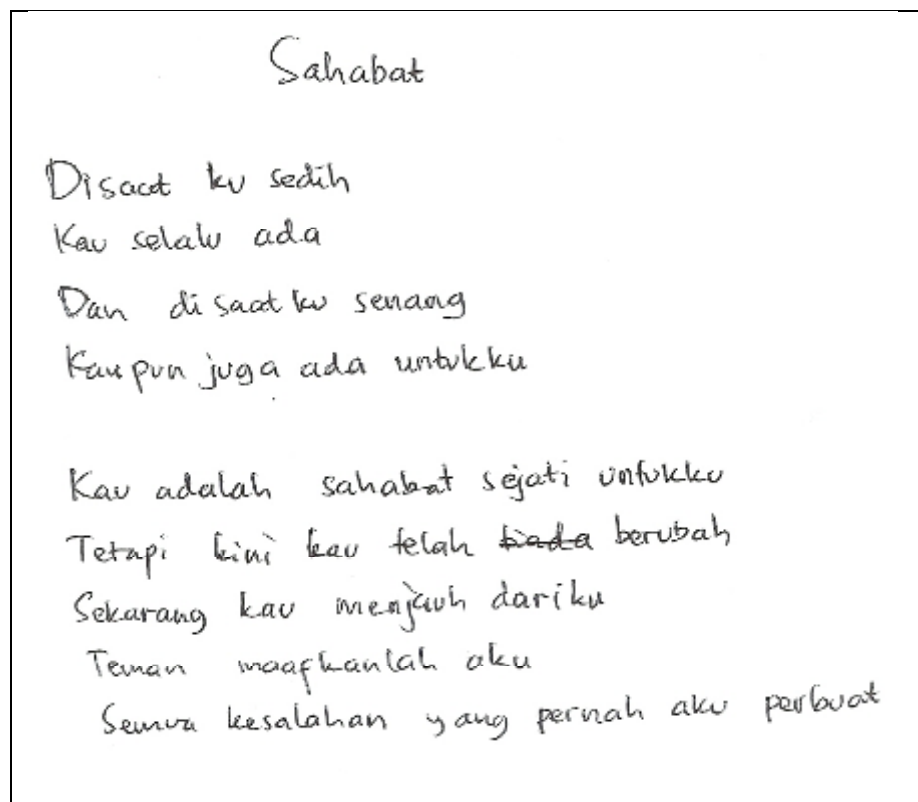 Sahabat
Disaat ku sedih
Kau selalu ada
Dan disaat ku senang
Kaupun juga ada untukku
Kau adalah sahabat sejati untukku
Tetapi kini kau telah tiada berubah
Sekarang kau menjauh dariku
Teman maafkanlah aku
Semua kesalahan yang pernah aku perbuat